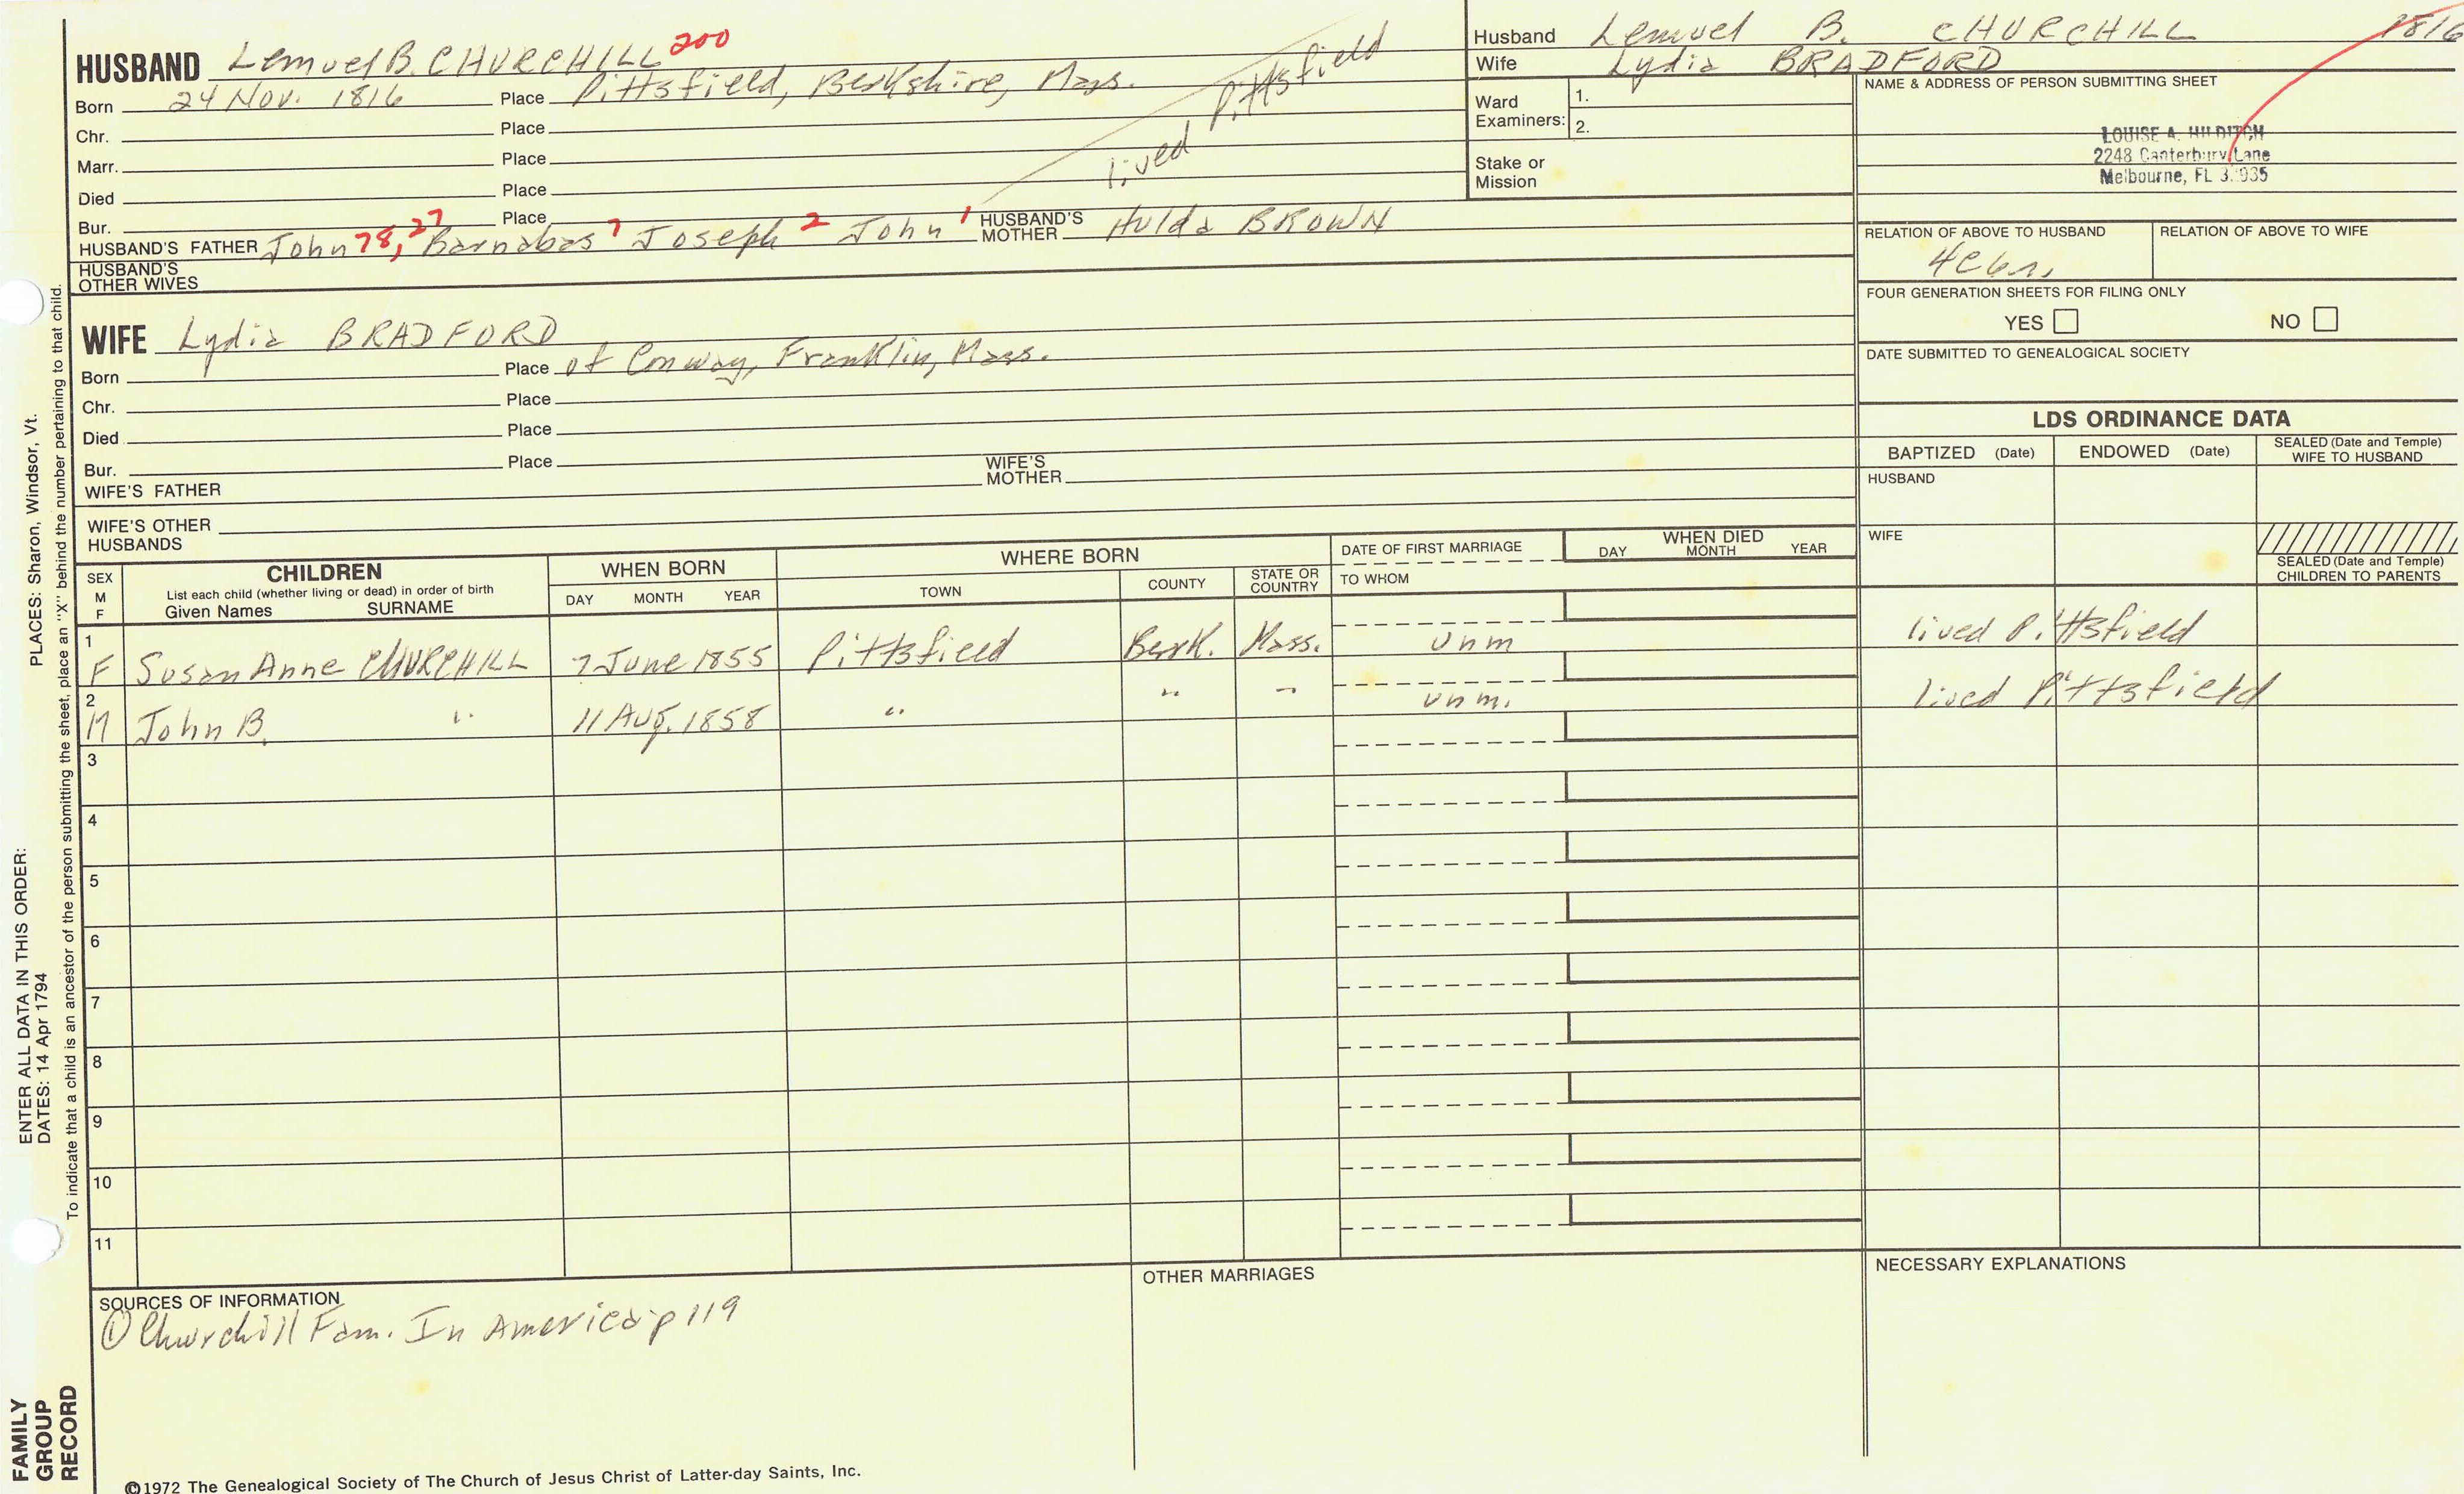 HUSBAND Lemuel B. CHURCHILL 200
Born 24 Nov. 1816 Place Pittsfield, Berkshire, Mass.
Chr. Place
Marr. Place
Died Place
Bur. Place
lived Pittsfield
HUSBAND'S FATHER John 78, 27 Barnabas 7 Joseph 2 John 1 HUSBAND'S MOTHER Hulda BROWN
HUSBAND'S OTHER WIVES
WIFE Lydia BRADFORD
Born Place of Conway, Franklin, Mass.
Chr. Place
Died Place
Bur. Place
WIFE'S FATHER WIFE'S MOTHER
WIFE'S OTHER HUSBANDS
Husband Lemuel B. CHURCHILL 1816
Wife Lydia BRADFORD
Ward Examiners: 1.
2.
Stake or Mission
NAME & ADDRESS OF PERSON SUBMITTING SHEET
LOUISE A. HILDITCH
2248 Canterbury Lane
Melbourne, FL
RELATION OF ABOVE TO HUSBAND RELATION OF ABOVE TO WIFE
FOUR GENERATION SHEETS FOR FILING ONLY
YES NO
DATE SUBMITTED TO GENEALOGICAL SOCIETY
LDS ORDINANCE DATA
BAPTIZED (Date) ENDOWED (Date) SEALED (Date and Temple) WIFE TO HUSBAND
HUSBAND
WIFE
SEALED (Date and Temple) CHILDREN TO PARENTS
SEX M F CHILDREN WHEN BORN WHERE BORN DATE OF FIRST MARRIAGE WHEN DIED
List each child (whether living or dead) in order of birth
Given Names SURNAME DAY MONTH YEAR TOWN COUNTY STATE OR COUNTRY TO WHOM DAY MONTH YEAR
1 F Susan Anne CHURCHILL 7 June 1855 Pittsfield Berk. Mass. unm lived Pittsfield
2 M John B. " 11 Aug. 1858 " " " unm. lived Pittsfield
3
4
5
6
7
8
9
10
11
SOURCES OF INFORMATION
① Churchill Fam. In America p 119
OTHER MARRIAGES
NECESSARY EXPLANATIONS
©1972 The Genealogical Society of The Church of Jesus Christ of Latter-day Saints, Inc.
ENTER ALL DATA IN THIS ORDER:
DATES: 14 Apr 1794 PLACES: Sharon, Windsor, Vt.
To indicate that a child is an ancestor of the person submitting the sheet, place an "X" behind the number pertaining to that child.
FAMILY
GROUP
RECORD